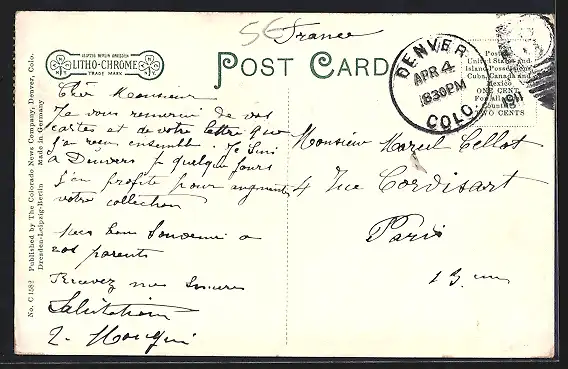 France
LEIPZIG BERLIN DRESDEN
LITHO-CHROME
TRADE MARK
POST CARD
DENVER
APR 4
830PM
COLO.
1911
United States and
Island Possessions
Cuba, Canada and
Mexico
ONE CENT
For All
TWO CENTS
No. C 1582 Published by The Colorado News Company, Denver, Colo.
Dresden-Leipzig-Berlin Made in Germany
Cher Monsieur
Je vous remercie de vos
cartes et de votre lettre que
j'ai reçu ensemble. Je suis
a Denver pr quelques jours
J'en profite pour augmenter
votre collection
bon Souvenir a
vos parents
Recevez nos sincères
Salutations
Monsieur Marcel Cellot
4 Rue Corvisart
Paris
13 me